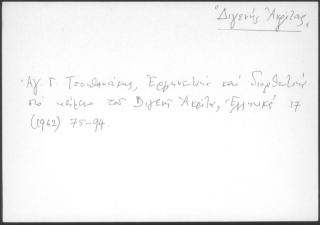 "Διγενής Ἀκρίτας"
Ἀγ. Γ. Τσοπανάκης, Ἑρμηνευτικὰ καὶ διορθωτικὰ
στὸ κείμενο τοῦ Διγενῆ Ἀκρίτα, Ἑλληνικά 17
(1962) 75-94.